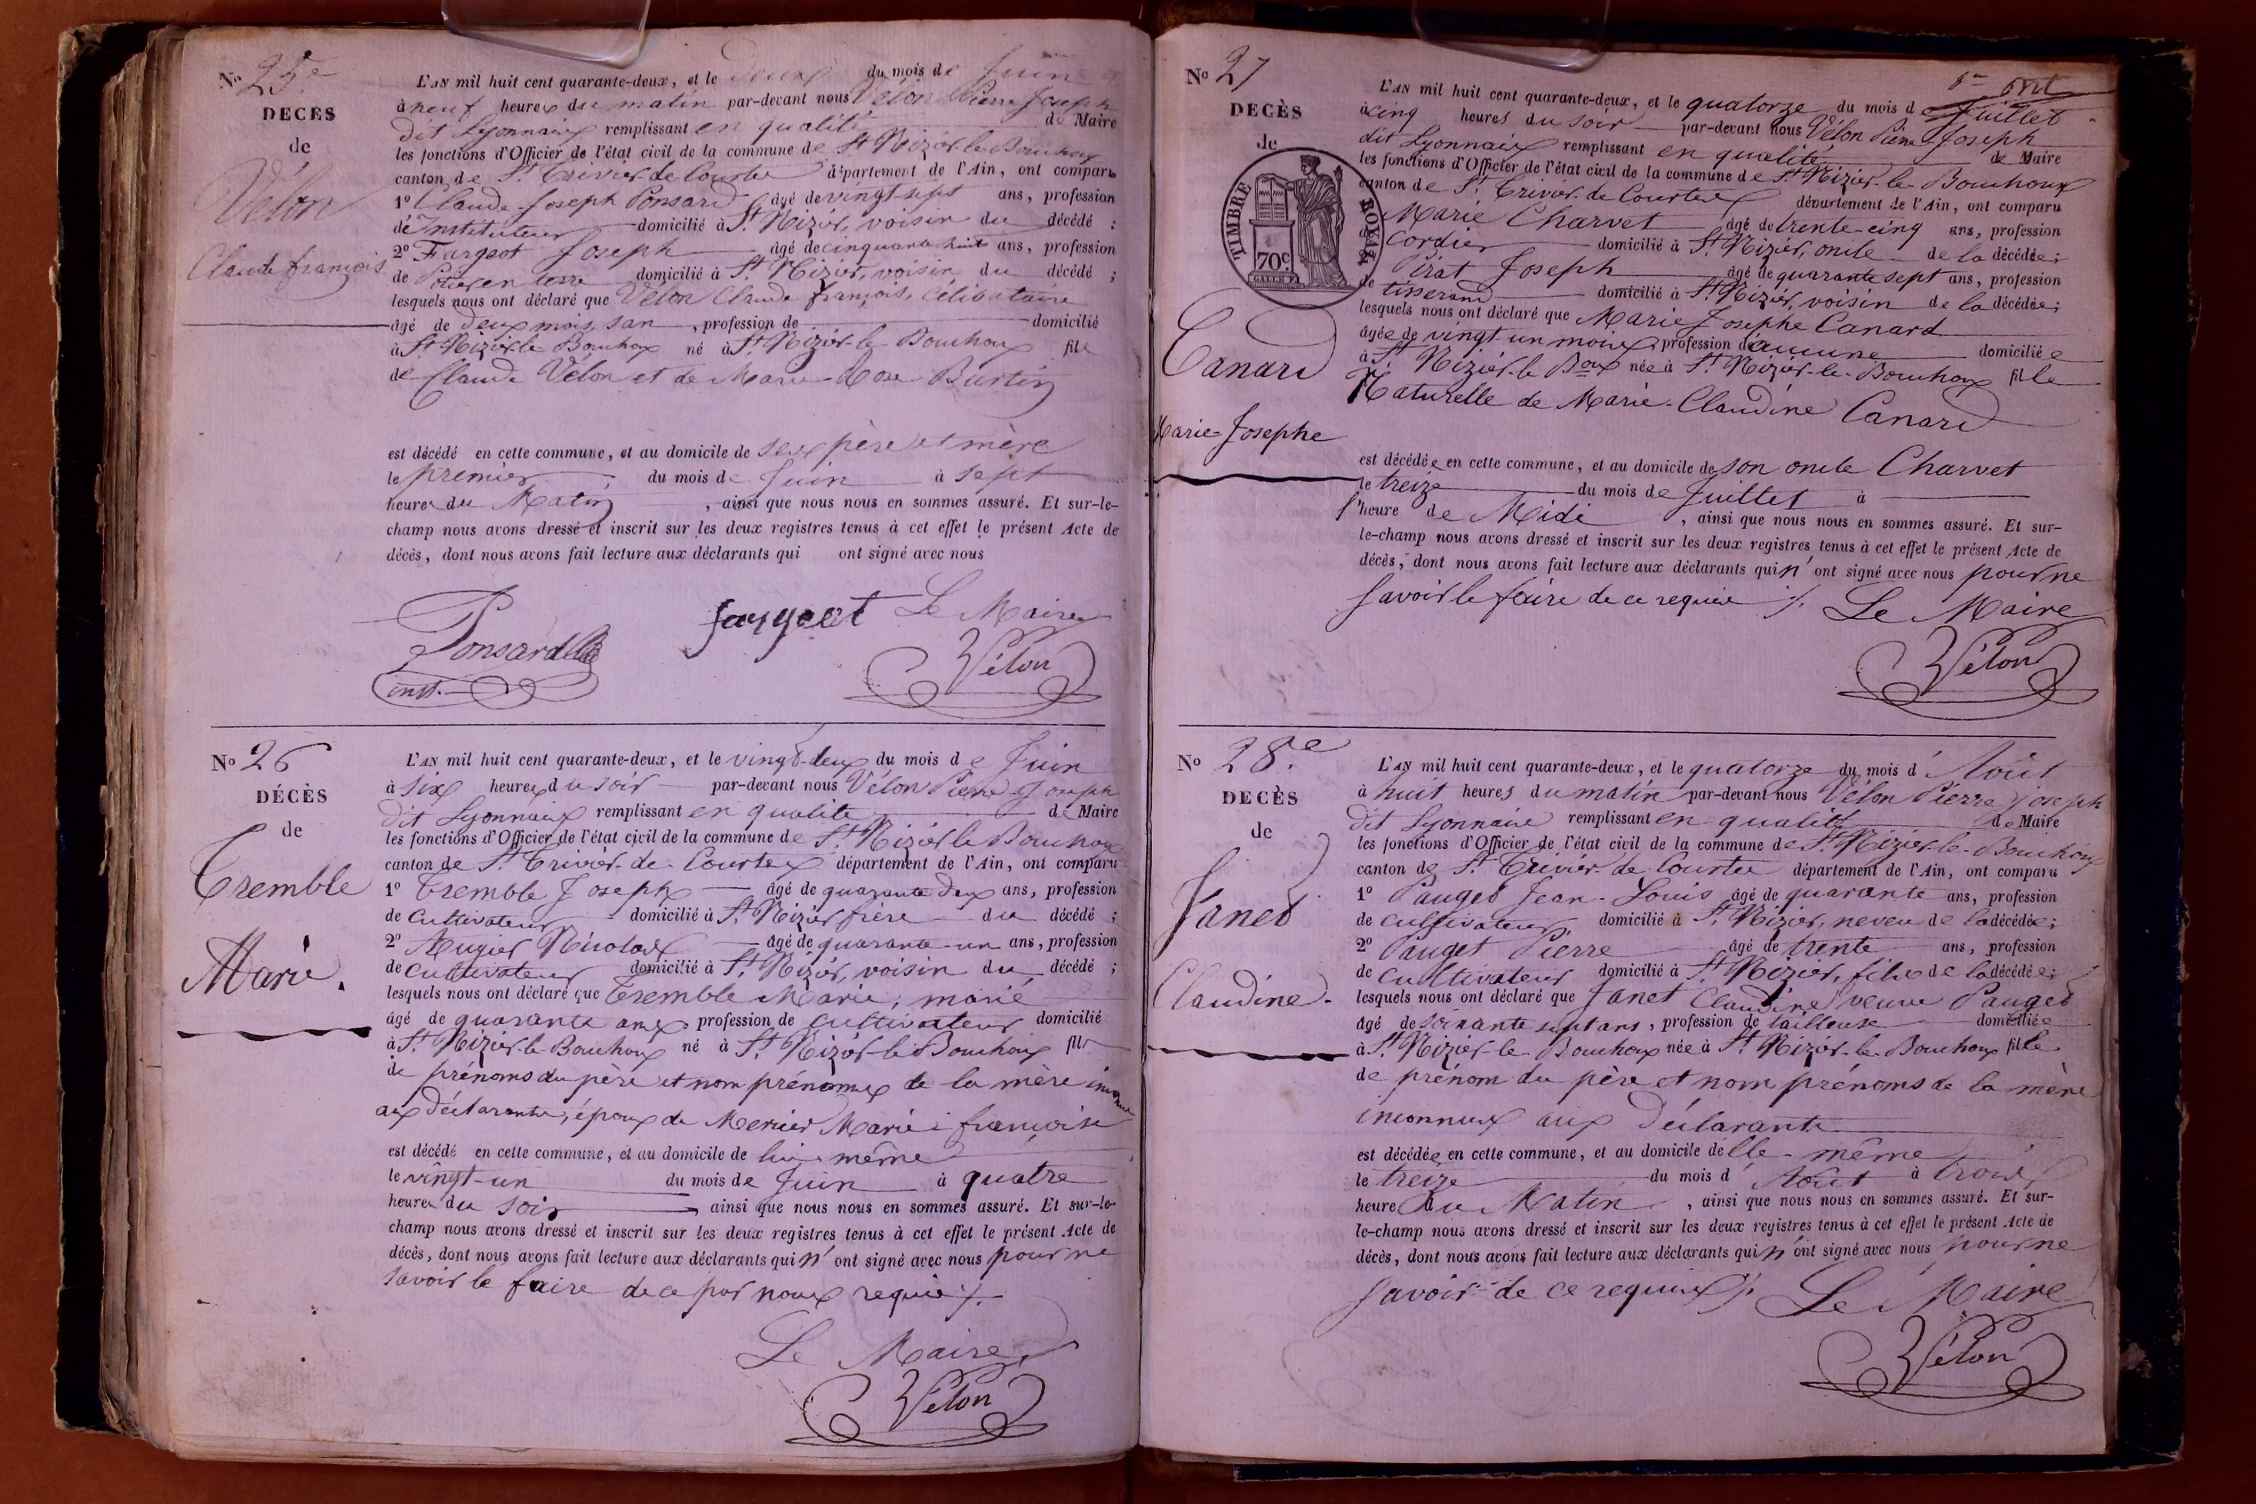 No 25e
DECÈS
de
Vélon
Claude françois
L'AN mil huit cent quarante-deux, et le deux du mois de Juin
à neuf heures du matin par-devant nous Vélon Pierre Joseph
dit Lyonnais remplissant en qualité de Maire
les fonctions d'Officier de l'état civil de la commune de St Nizier le Bouchoux
canton de St Trivier de Courtes département de l'Ain, ont comparu
1o Claude Joseph Ponsard âgé de vingt sept ans, profession
de Instituteur domicilié à St Nizier, voisin du décédé ;
2o Fargeot Joseph âgé de cinquante huit ans, profession
de Potier en terre domicilié à St Nizier, voisin du décédé ;
lesquels nous ont déclaré que Vélon Claude françois, Célibataire
âgé de deux mois, san , profession de domicilié
à St Nizier le Bouchoux né à St Nizier-le-Bouchoux fils
de Claude Vélon et de Marie Rose Burtin
est décédé en cette commune, et au domicile de ses père et mère
le premier du mois de Juin à sept
heures du Matin , ainsi que nous nous en sommes assuré. Et sur-le-
champ nous avons dressé et inscrit sur les deux registres tenus à cet effet le présent Acte de
décès, dont nous avons fait lecture aux déclarants qui ont signé avec nous
Ponsard
inst.
fargeot
Le Maire
Vélon
No 26
DÉCÈS
de
Tremble
Marie.
L'AN mil huit cent quarante-deux, et le vingt-deux du mois de Juin
à six heures du soir par-devant nous Vélon Pierre Joseph
dit Lyonnais remplissant en qualité de Maire
les fonctions d'Officier de l'état civil de la commune de St Nizier le Bouchoux
canton de St Trivier-de-Courtes département de l'Ain, ont comparu
1o Tremble Joseph âgé de quarante deux ans, profession
de Cultivateur domicilié à St Nizier frère du décédé ;
2o Augier Nicolas âgé de quarante-un ans, profession
de cultivateur domicilié à St Nizier, voisin du décédé ;
lesquels nous ont déclaré que Tremble Marie, marié
âgé de quarante ans profession de cultivateur domicilié
à St Nizier-le-Bouchoux né à St Nizier-le-Bouchoux fils
de prénoms du père et nom prénoms de la mère inconnus
aux déclarants, époux de Mercier Marie françoise
est décédé en cette commune, et au domicile de lui-même
le vingt-un du mois de Juin à quatre
heures du soir , ainsi que nous nous en sommes assuré. Et sur-le-
champ nous avons dressé et inscrit sur les deux registres tenus à cet effet le présent Acte de
décès, dont nous avons fait lecture aux déclarants qui n'ont signé avec nous pour ne
savoir le faire de ce par nous requis ./.
Le Maire
Vélon
No 27
DECÈS
de
TIMBRE ROYAL
70c
Canard
Marie-Josephe
L'AN mil huit cent quarante-deux, et le quatorze du mois de Juillet
à cinq heures du soir par-devant nous Vélon Pierre Joseph
dit Lyonnais remplissant en qualité de Maire
les fonctions d'Officier de l'état civil de la commune de St Nizier-le-Bouchoux
canton de St Trivier-de-Courtes département de l'Ain, ont comparu
Marie Charvet âgé de trente-cinq ans, profession
Cordier domicilié à St Nizier, oncle de la décédée ;
Pirat Joseph âgé de quarante sept ans, profession
de tisserand domicilié à St Nizier, voisin de la décédée ;
lesquels nous ont déclaré que Marie Josephe Canard
âgée de vingt un mois, profession d'aucune domiciliée
à St Nizier-le-Boux née à St Nizier-le-Bouchoux fille
Naturelle de Marie-Claudine Canard
est décédée en cette commune, et au domicile de son oncle Charvet
le treize du mois de Juillet à
l'heure de Midi , ainsi que nous nous en sommes assuré. Et sur-
le-champ nous avons dressé et inscrit sur les deux registres tenus à cet effet le présent Acte de
décès, dont nous avons fait lecture aux déclarants qui n'ont signé avec nous pour ne
savoir le faire de ce requis ./.
Le Maire
Vélon
No 28.e
DECÈS
de
Janet
Claudine.
L'AN mil huit cent quarante-deux, et le quatorze du mois d'Août
à huit heures du matin par-devant nous Vélon Pierre joseph
dit Lyonnais remplissant en qualité de Maire
les fonctions d'Officier de l'état civil de la commune de St Nizier-le-Bouchoux
canton de St Trivier-de-Courtes département de l'Ain, ont comparu
1o Pauget Jean-Louis âgé de quarante ans, profession
de cultivateur domicilié à St Nizier, neveu de la décédée ;
2o Pauget Pierre âgé de trente ans, profession
de cultivateur domicilié à St Nizier, fils de la décédée ;
lesquels nous ont déclaré que Janet Claudine veuve Pauget
âgé de soixante sept ans, profession de tailleuse domiciliée
à St Nizier-le-Bouchoux née à St Nizier-le-Bouchoux fille
de prénom du père et nom prénoms de la mère
inconnus aux Déclarants
est décédée en cette commune, et au domicile d'elle-même
le treize du mois d'Août à trois
heure du Matin , ainsi que nous nous en sommes assuré. Et sur-
le-champ nous avons dressé et inscrit sur les deux registres tenus à cet effet le présent Acte de
décès, dont nous avons fait lecture aux déclarants qui n'ont signé avec nous pour ne
savoir de ce requis ./.
Le Maire
Vélon